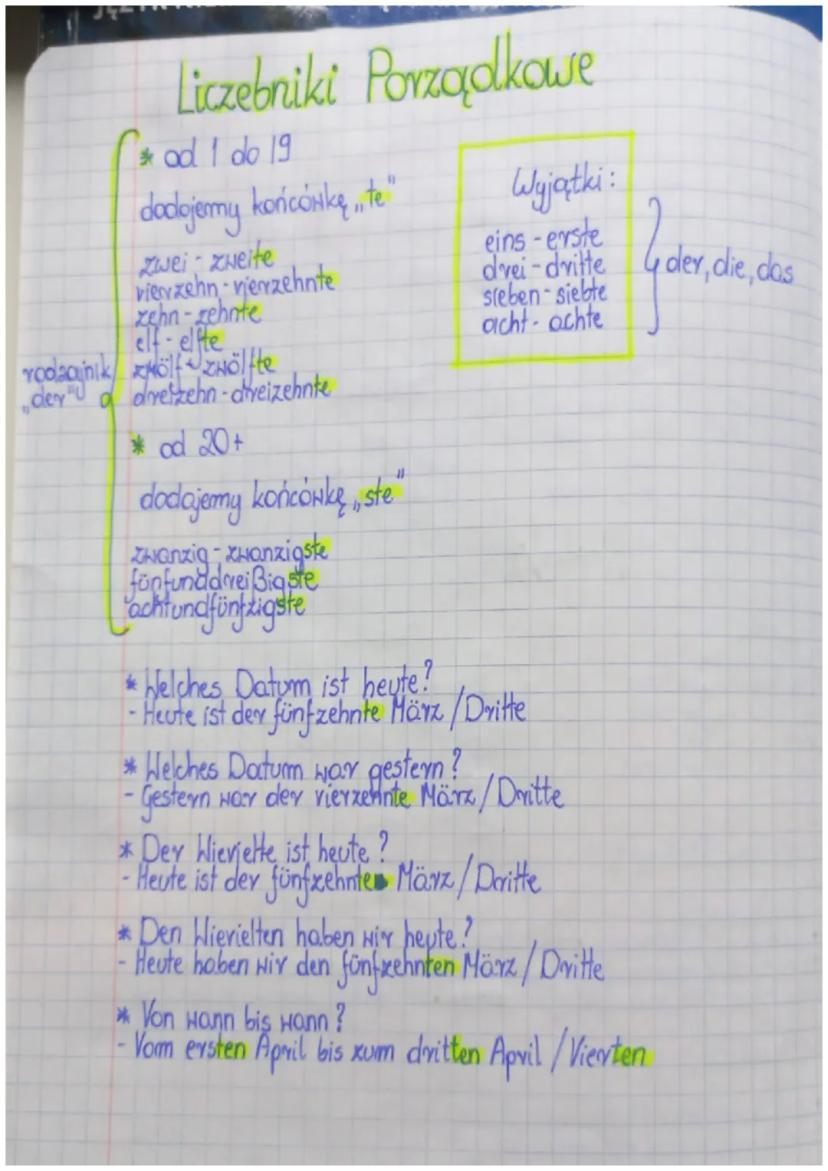 Liczebniki Porządkowe
* od 1 do 19
dodajemy końcówkę „te"
zwei - zweite
vierzehn - vierzehnte
zehn - zehnte
elf - elfte
zwölf - zwölfte
dreizehn - dreizehnte
rodzajnik
„der"
* od 20+
dodajemy końcówkę „ste"
zwanzig - zwanzigste
fünfunddreißigste
achtundfünfzigste
Wyjątki:
eins - erste
drei - dritte
sieben - siebte
acht - achte
der, die, das
* Welches Datum ist heute?
- Heute ist der fünfzehnte März / Dritte
* Welches Datum war gestern?
- Gestern war der vierzehnte März / Dritte
* Der Wievielte ist heute?
- Heute ist der fünfzehnte März / Dritte
* Den Wievielten haben wir heute?
- Heute haben wir den fünfzehnten März / Dritte
* Von wann bis wann?
- Vom ersten April bis zum dritten April / Vierten